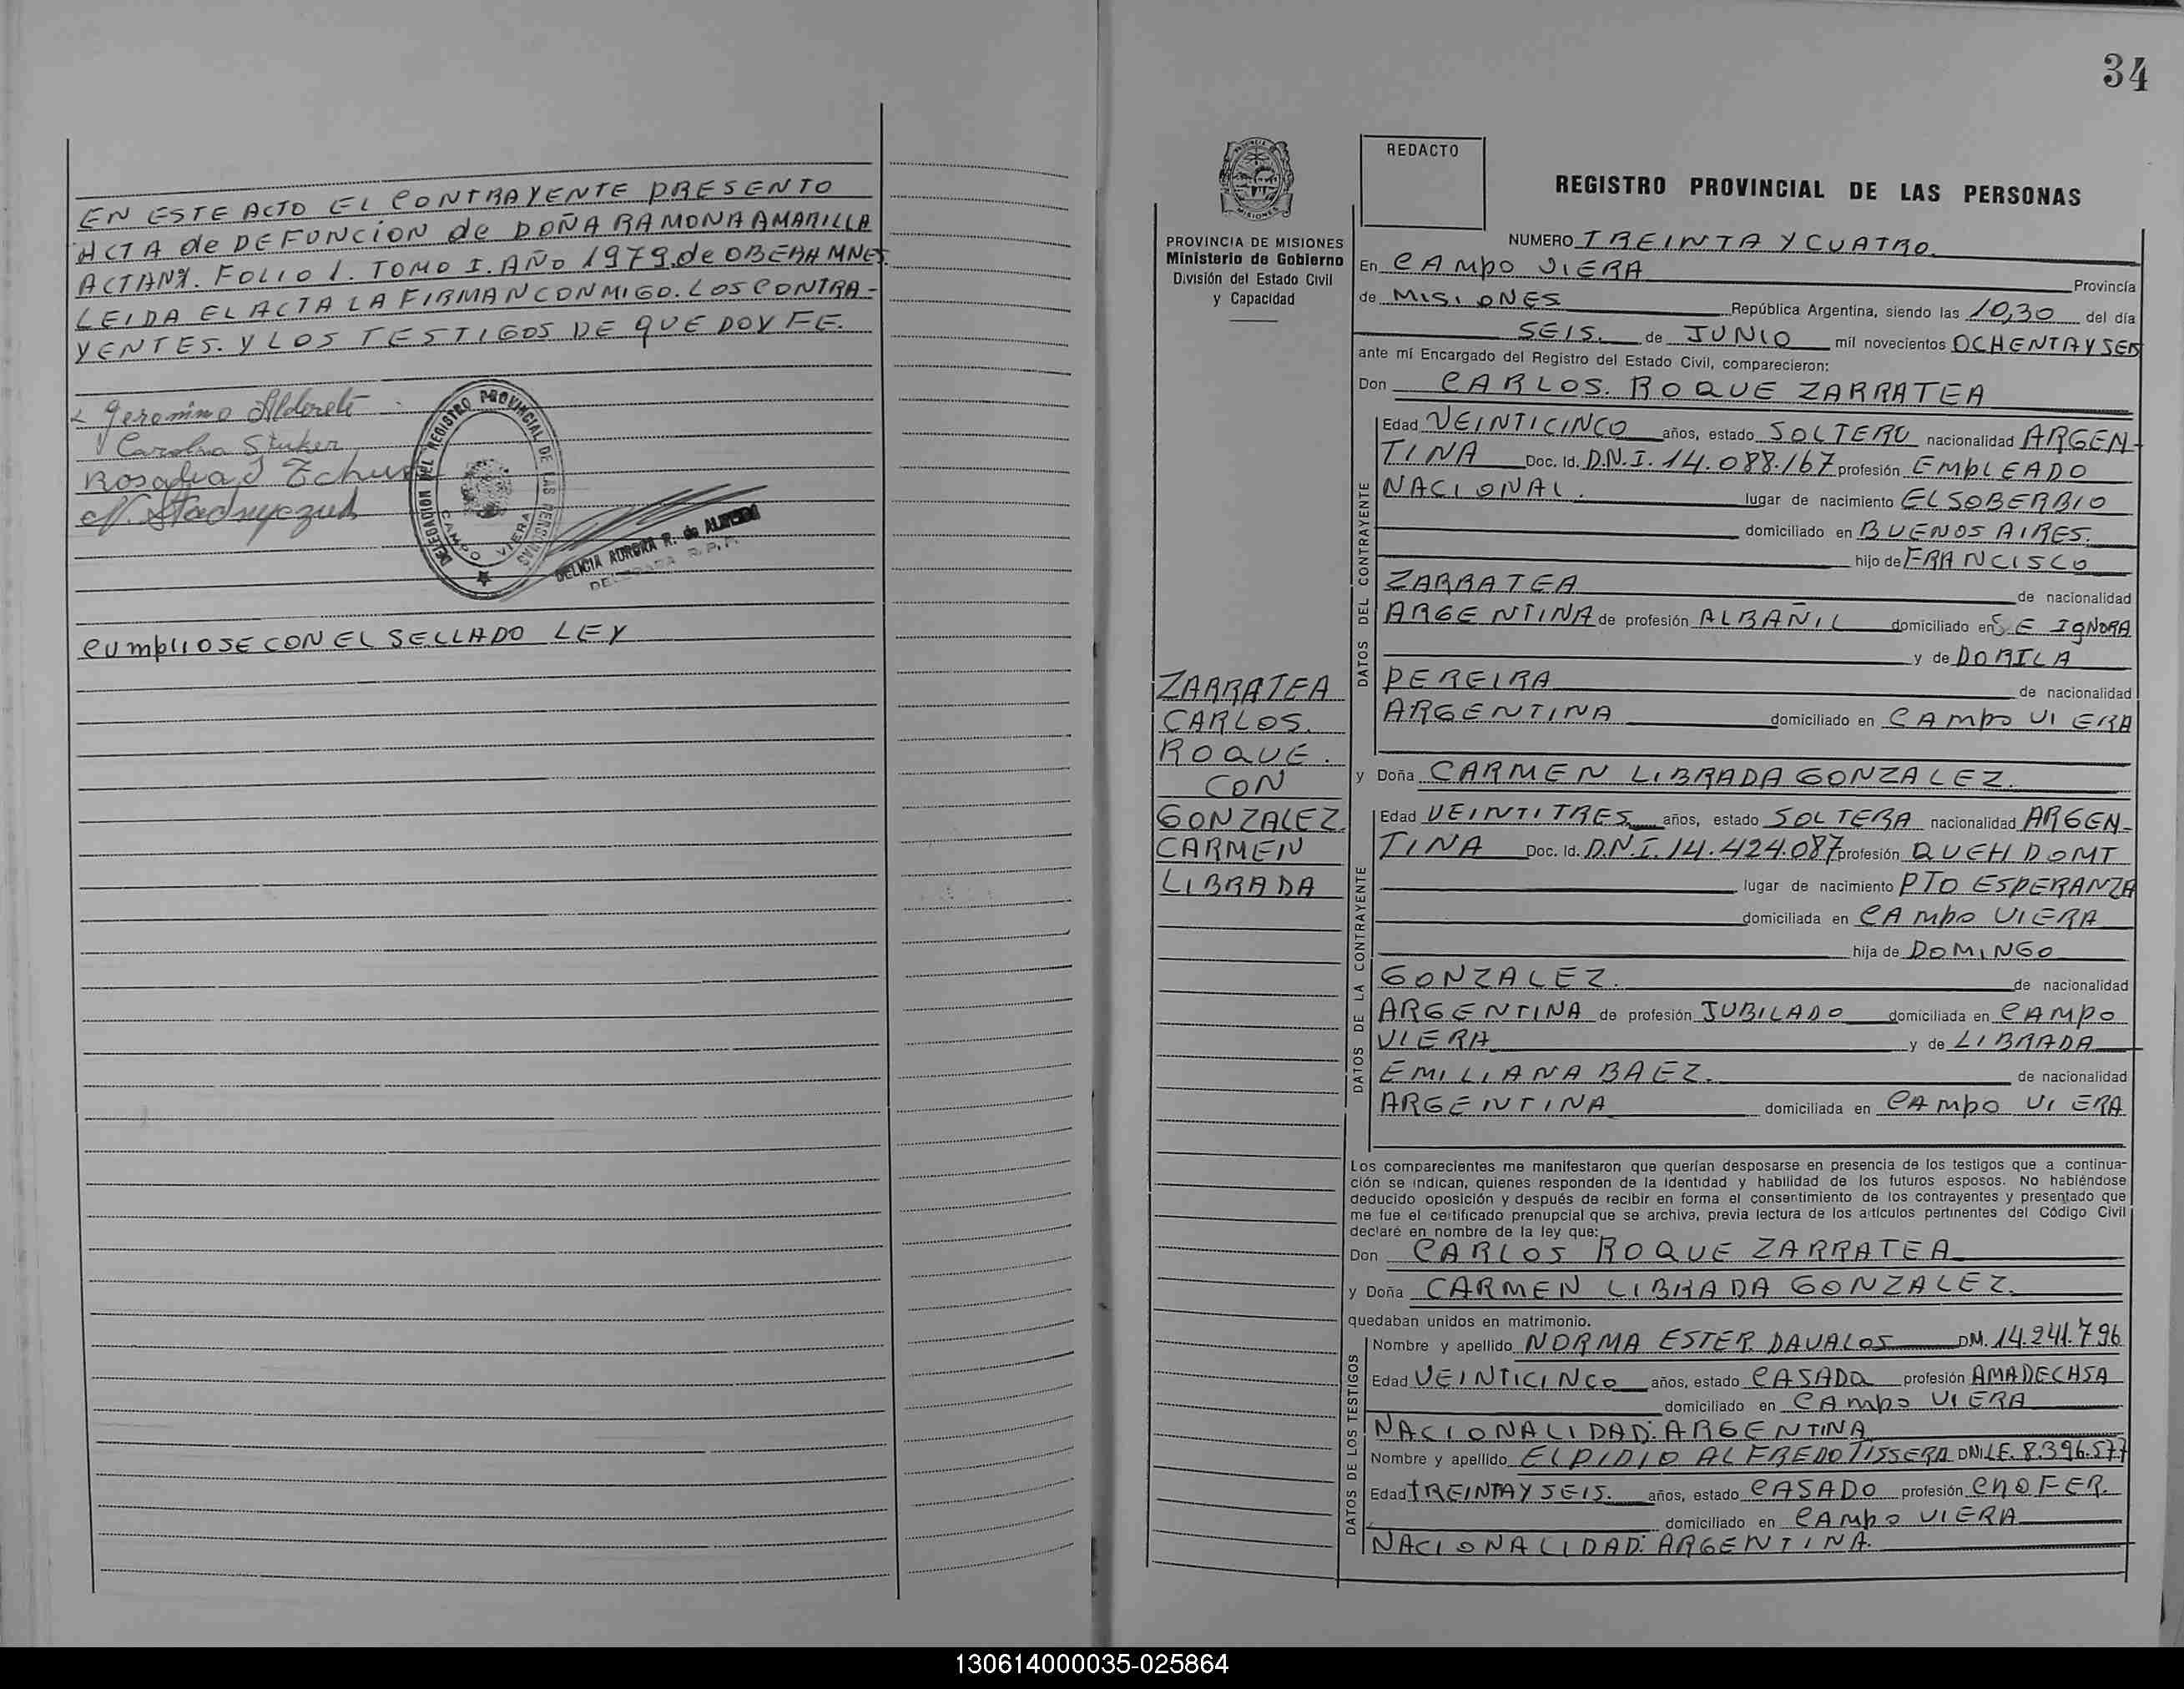 EN ESTE ACTO EL CONTRAYENTE PRESENTO
ACTA de DEFUNCION de DOÑA RAMONA AMARILLA
FOLIO 1. TOMO I. AÑO 1979, de OBERA MNES.
LEIDA EL ACTA LA FIRMAN CONMIGO. LOS CONTRA-
YENTES. Y LOS TESTIGOS DE QUE DOY FE.
Geronimo Alderete
Carolina Stuker
DELEGACION DEL REGISTRO PROVINCIAL DE LAS PERSONAS
CAMPO VIERA
DELICIA AURORA R. de
CUMPLIOSE CON EL SELLADO LEY
34
REDACTO
REGISTRO PROVINCIAL DE LAS PERSONAS
PROVINCIA DE MISIONES
Ministerio de Gobierno
División del Estado Civil
y Capacidad
ZARRATEA
CARLOS.
ROQUE.
CON
GONZALEZ
CARMEN
LIBRADA
NUMERO TREINTA Y CUATRO.
En CAMPO VIERA Provincia
de MISIONES República Argentina, siendo las 10,30 del día
SEIS. de JUNIO mil novecientos OCHENTA Y SEIS
ante mí Encargado del Registro del Estado Civil, comparecieron:
Don CARLOS. ROQUE ZARRATEA
DATOS DEL CONTRAYENTE
Edad VEINTICINCO años, estado SOLTERO nacionalidad ARGEN-
TINA Doc. Id. D.N.I. 14.088.167 profesión EMPLEADO
NACIONAL. lugar de nacimiento EL SOBERBIO
domiciliado en BUENOS AIRES.
hijo de FRANCISCO
ZARRATEA de nacionalidad
ARGENTINA de profesión ALBAÑIL domiciliado en SE IGNORA
y de DORILA
PEREIRA de nacionalidad
ARGENTINA domiciliado en CAMPO VIERA
y Doña CARMEN LIBRADA GONZALEZ.
DATOS DE LA CONTRAYENTE
Edad VEINTITRES años, estado SOLTERA nacionalidad ARGEN-
TINA Doc. Id. D.N.I. 14.424.087 profesión QUEH DOMT
lugar de nacimiento PTO ESPERANZA
domiciliada en CAMPO VIERA
hija de DOMINGO
GONZALEZ. de nacionalidad
ARGENTINA de profesión JUBILADO domiciliada en CAMPO
VIERA y de LIBRADA
EMILIANA BAEZ. de nacionalidad
ARGENTINA domiciliada en CAMPO VIERA
Los comparecientes me manifestaron que querían desposarse en presencia de los testigos que a continua-
ción se indican, quienes responden de la identidad y habilidad de los futuros esposos. No habiéndose
deducido oposición y después de recibir en forma el consentimiento de los contrayentes y presentado que
me fue el certificado prenupcial que se archiva, previa lectura de los artículos pertinentes del Código Civil
declaré en nombre de la ley que:
Don CARLOS ROQUE ZARRATEA
y Doña CARMEN LIBRADA GONZALEZ.
quedaban unidos en matrimonio.
DATOS DE LOS TESTIGOS
Nombre y apellido NORMA ESTER DAVALOS DM. 14.241.796
Edad VEINTICINCO años, estado CASADA profesión AMADECASA
domiciliado en CAMPO VIERA
NACIONALIDAD: ARGENTINA
Nombre y apellido ELPIDIO ALFREDO TISSERA DNI LE. 8.396.577
Edad TREINTA Y SEIS. años, estado CASADO profesión CHOFER.
domiciliado en CAMPO VIERA
NACIONALIDAD: ARGENTINA.
130614000035-025864